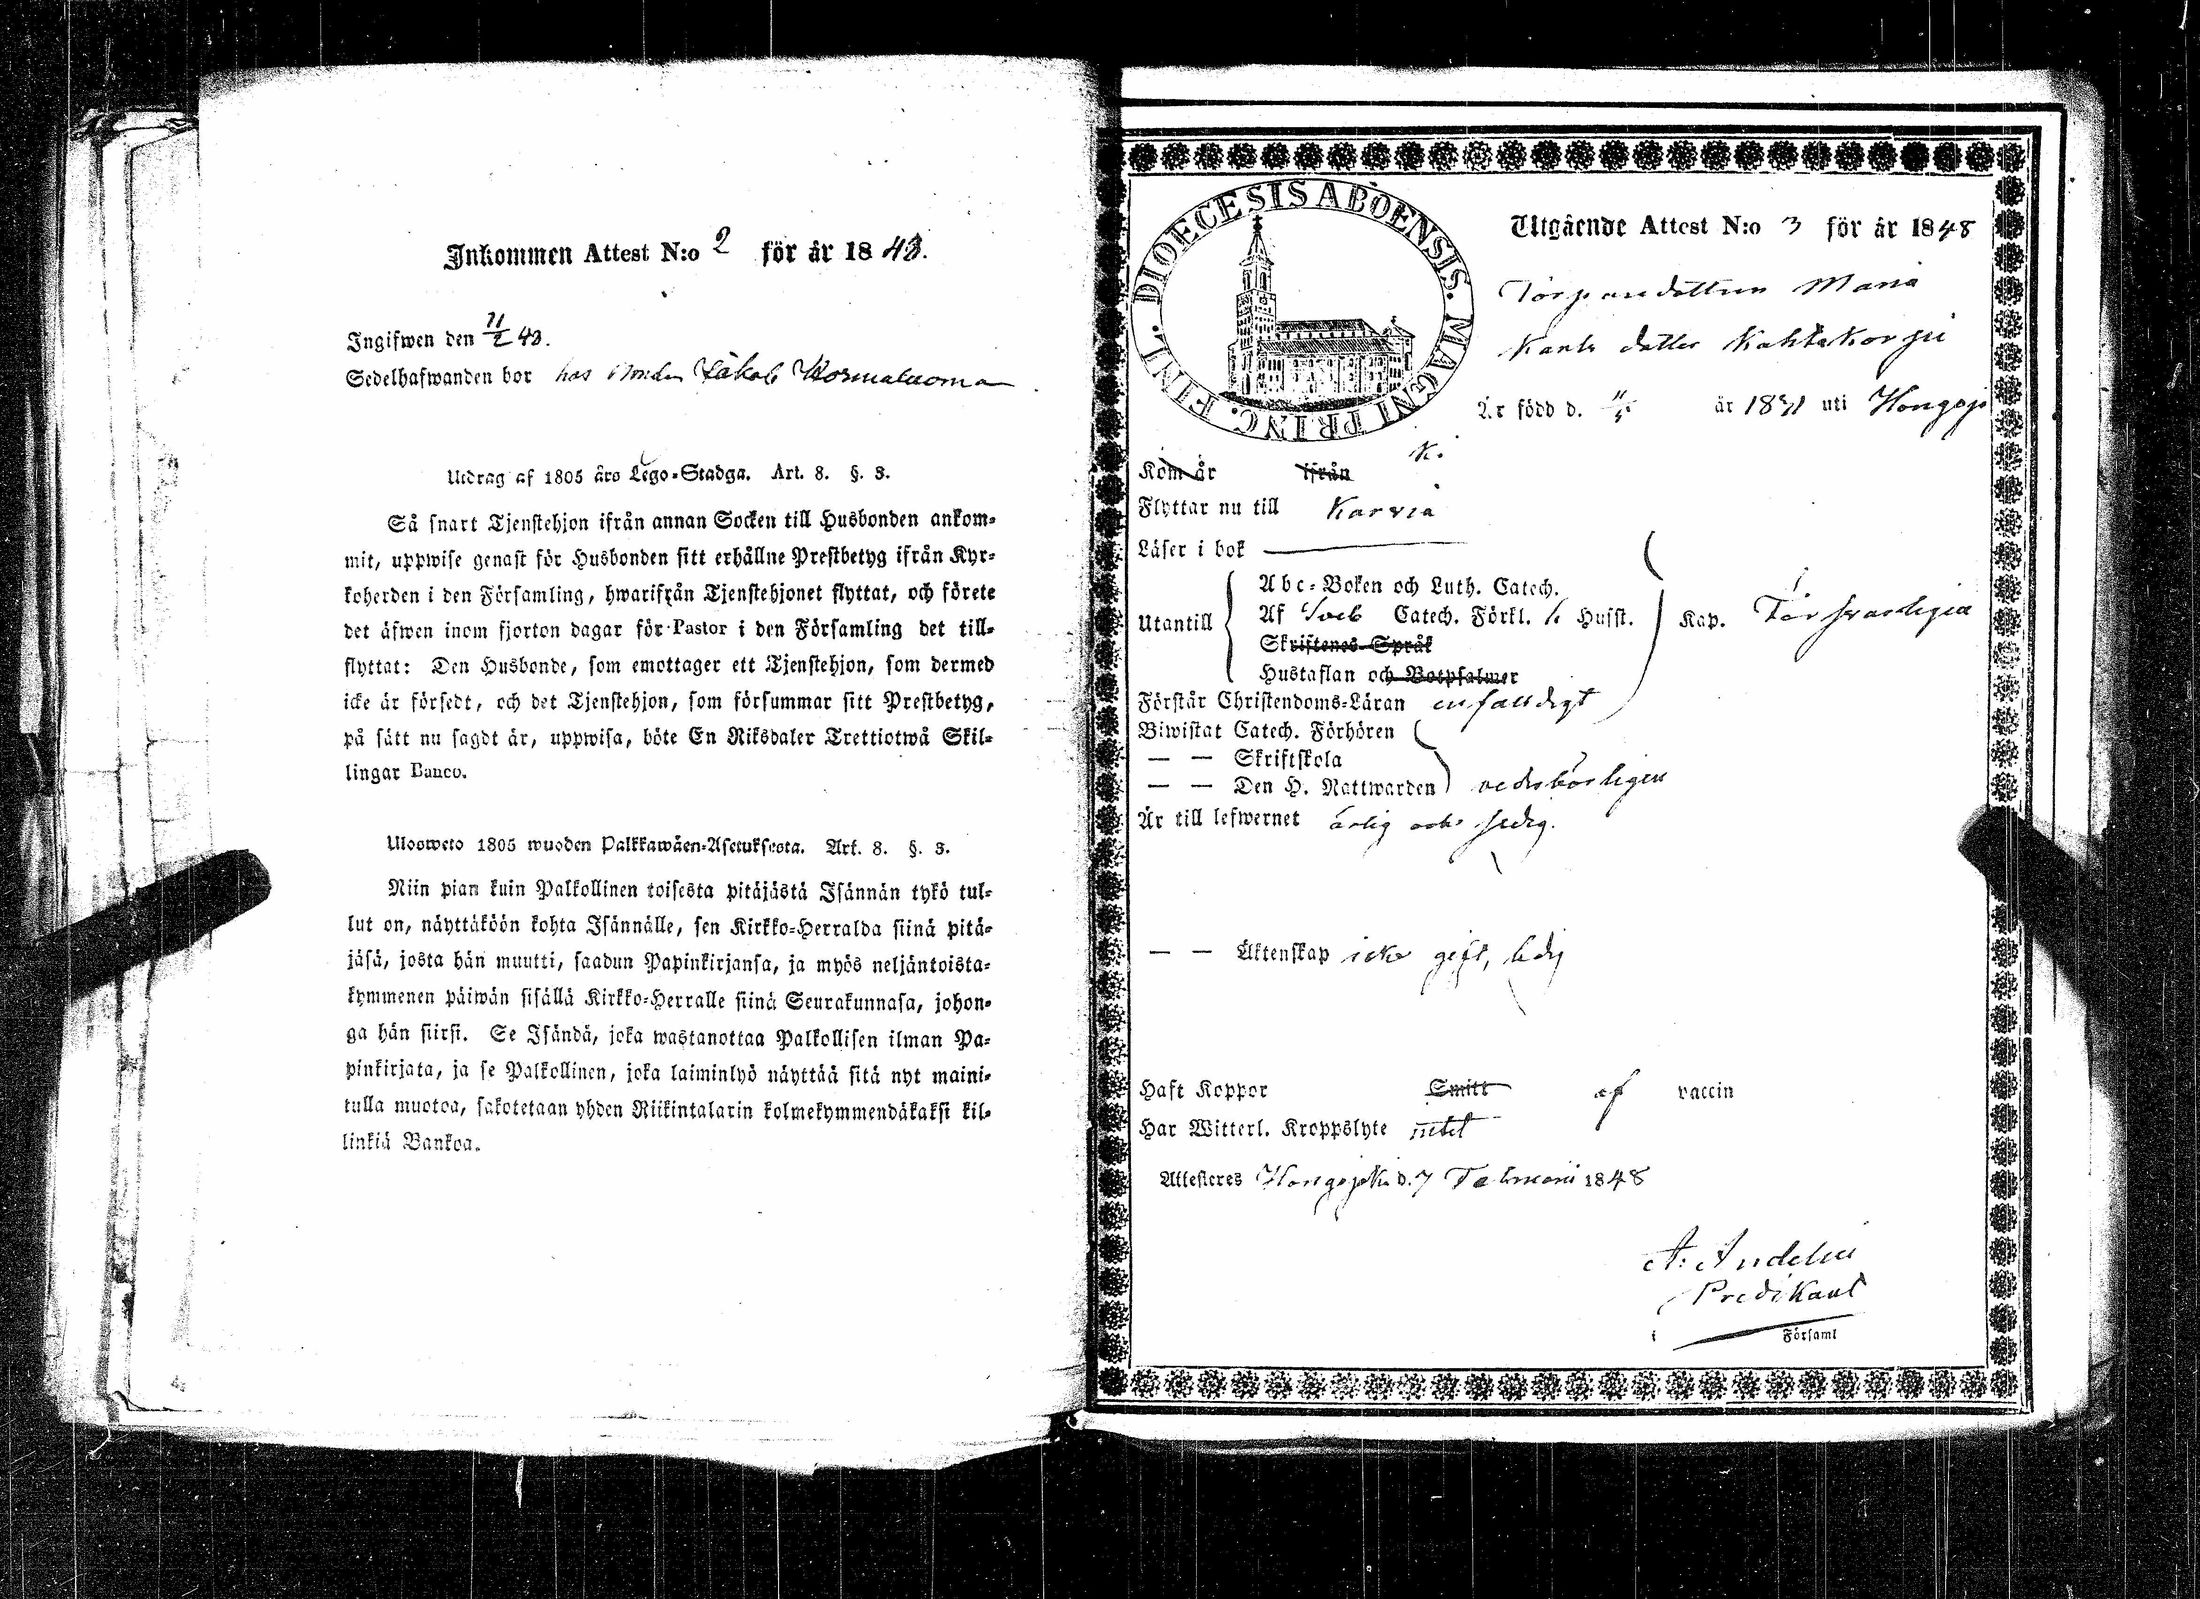 Inkommen Attest N:o 2 för år 1848.
Ingifwen den 11/2 48.
Sedelhafwanden bor hos Bonden Jakob
Utdrag af 1805 års Lego-Stadga. Art. 8. §. 3.
Så snart Tjenstehjon ifrån annan Socken till Husbonden ankom-
mit, uppwise genast för Husbonden sitt erhållne Prestbetyg ifrån Kyr-
koherden i den Församling, hwarifrån Tjenstehjonet flyttat, och förete
det äfwen inom fjorton dagar för Pastor i den Församling det till-
flyttat: Den Husbonde, som emottager ett Tjenstehjon, som dermed
icke är försedt, och det Tjenstehjon, som försummar sitt Prestbetyg,
på sätt nu sagdt är, uppwisa, böte En Riksdaler Trettiotwå Skil-
lingar Banco.
Ulosweto 1805 wuoden Palkkawäen-Asetuksesta. Art. 8. §. 3.
Niin pian kuin Palkollinen toisesta pitäjästä Isännän tykö tul-
lut on, näyttäköön kohta Isännälle, sen Kirkko-Herralda siinä pitä-
jäsä, josta hän muutti, saadun Papinkirjansa, ja myös neljäntoista-
kymmenen päiwän sisällä Kirkko-Herralle siinä Seurakunnasa, johon-
ga hän siirsi. Se Isändä, joka wastanottaa Palkollisen ilman Pa-
pinkirjata, ja se Palkollinen, joka laiminlyö näyttää sitä nyt maini-
tulla muotoa, sakotetaan yhden Riikintalarin kolmekymmendäkaksi kil-
linkiä Bankoa.
DIOECESIS ABOENSIS. MAGNI PRINC. FINL.
Utgående Attest N:o 3 för år 1848
Torparedottren Maria
dotter
Är född d. år 1831 uti Hongojo
ki
Kom år ifrån
Flyttar nu till Karvia
Läser i bok
Utantill
Abc-Boken och Luth. Catech.
Af Sveb Catech. Förkl. & Husst.
Skriftenes Språk
Hustaflan och Botpsalmer
Kap. Försvarligen
Förstår Christendoms-Läran enfaldigt
Biwistat Catech. Förhören
— — Skriftskola
— — Den H. Nattwarden vederbörligen
Är till lefwernet ärlig och sedig.
— — Äktenskap icke gift, ledig
Haft Koppor Smitt af vaccin
Har Witterl. Kroppslyte intet
Attesteres Hongojoki d. 7 Februarii 1848
A: Andelin
Predikant
i Församl